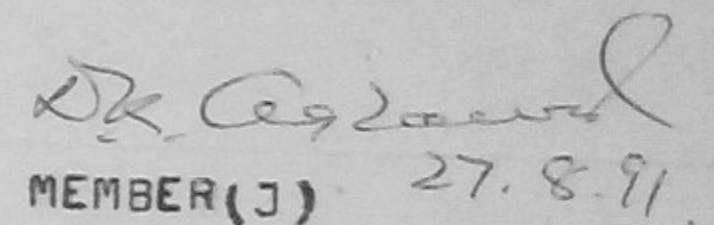 DK. Agrawal
MEMBER(J) 27.8.91.